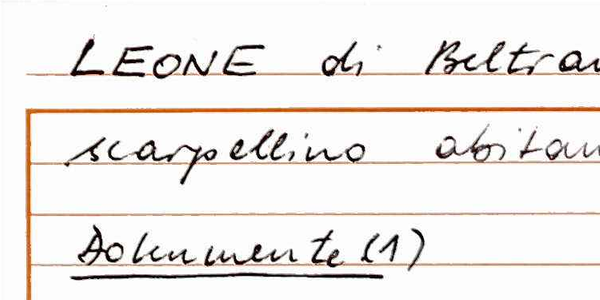 LEONE di Beltra
scarpellino abitan
Dokumente (1)